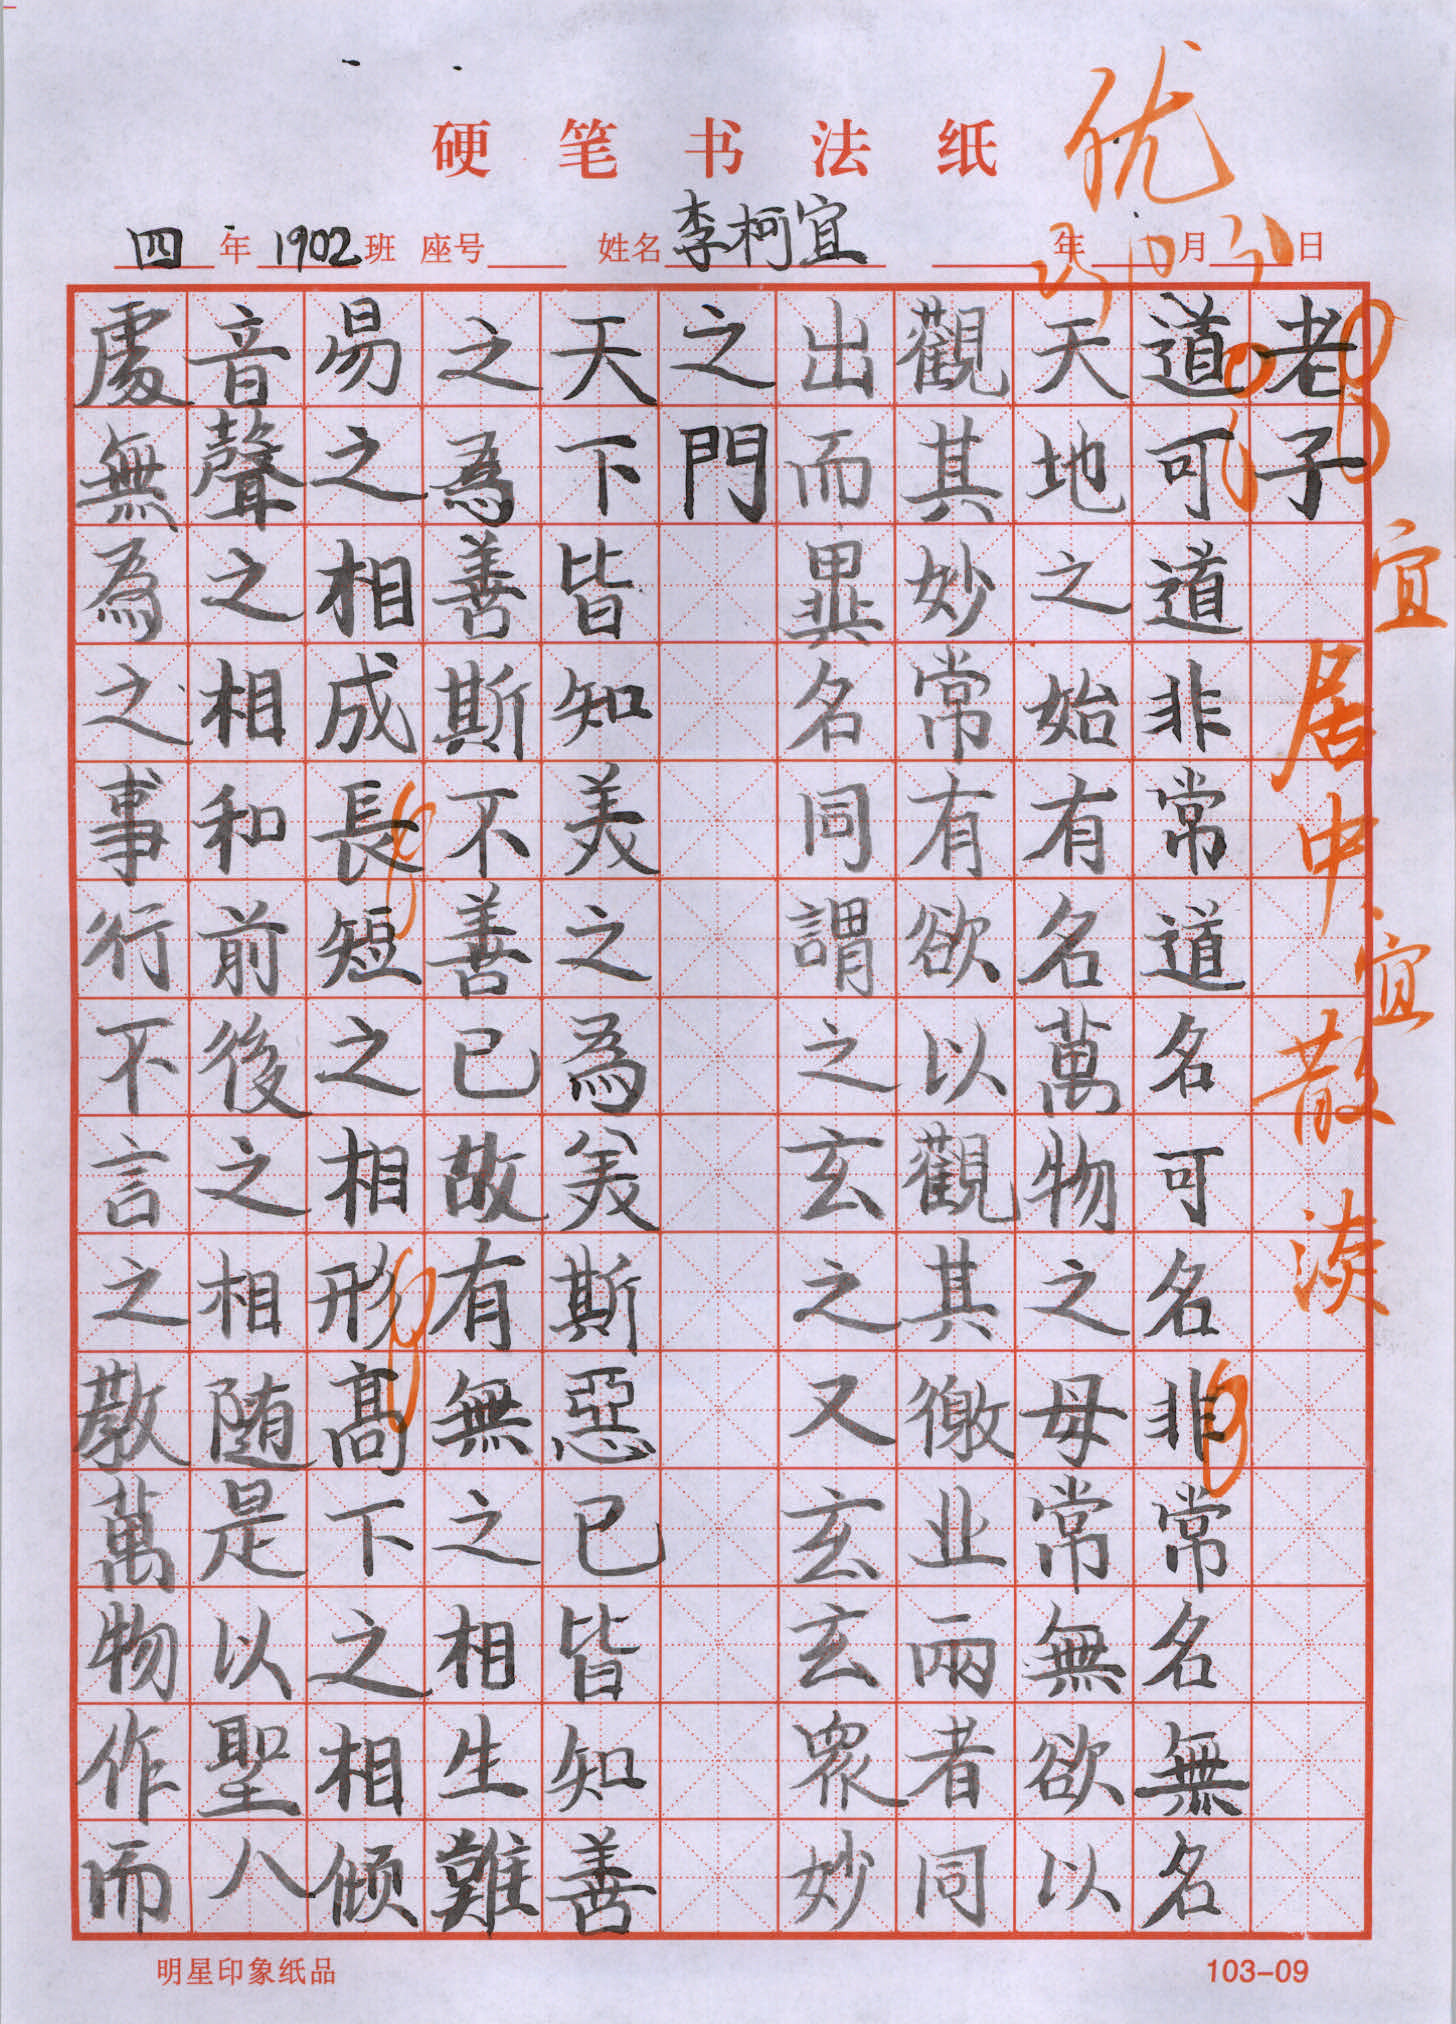 硬笔书法纸
优
四年 1902班 座号 姓名 李柯宜 年 月 日
老子
道可道非常道名可名非常名無名
天地之始有名萬物之母常無欲以
觀其妙常有欲以觀其徼业兩者同
出而異名同謂之玄之又玄玄衆妙
之門
天下皆知美之為美斯惡已皆知善
之為善斯不善已故有無之相生難
易之相成長短之相形高下之相倾
音聲之相和前後之相随是以聖人
處無為之事行不言之教萬物作而
宜居中
宜散淡
明星印象纸品
103-09